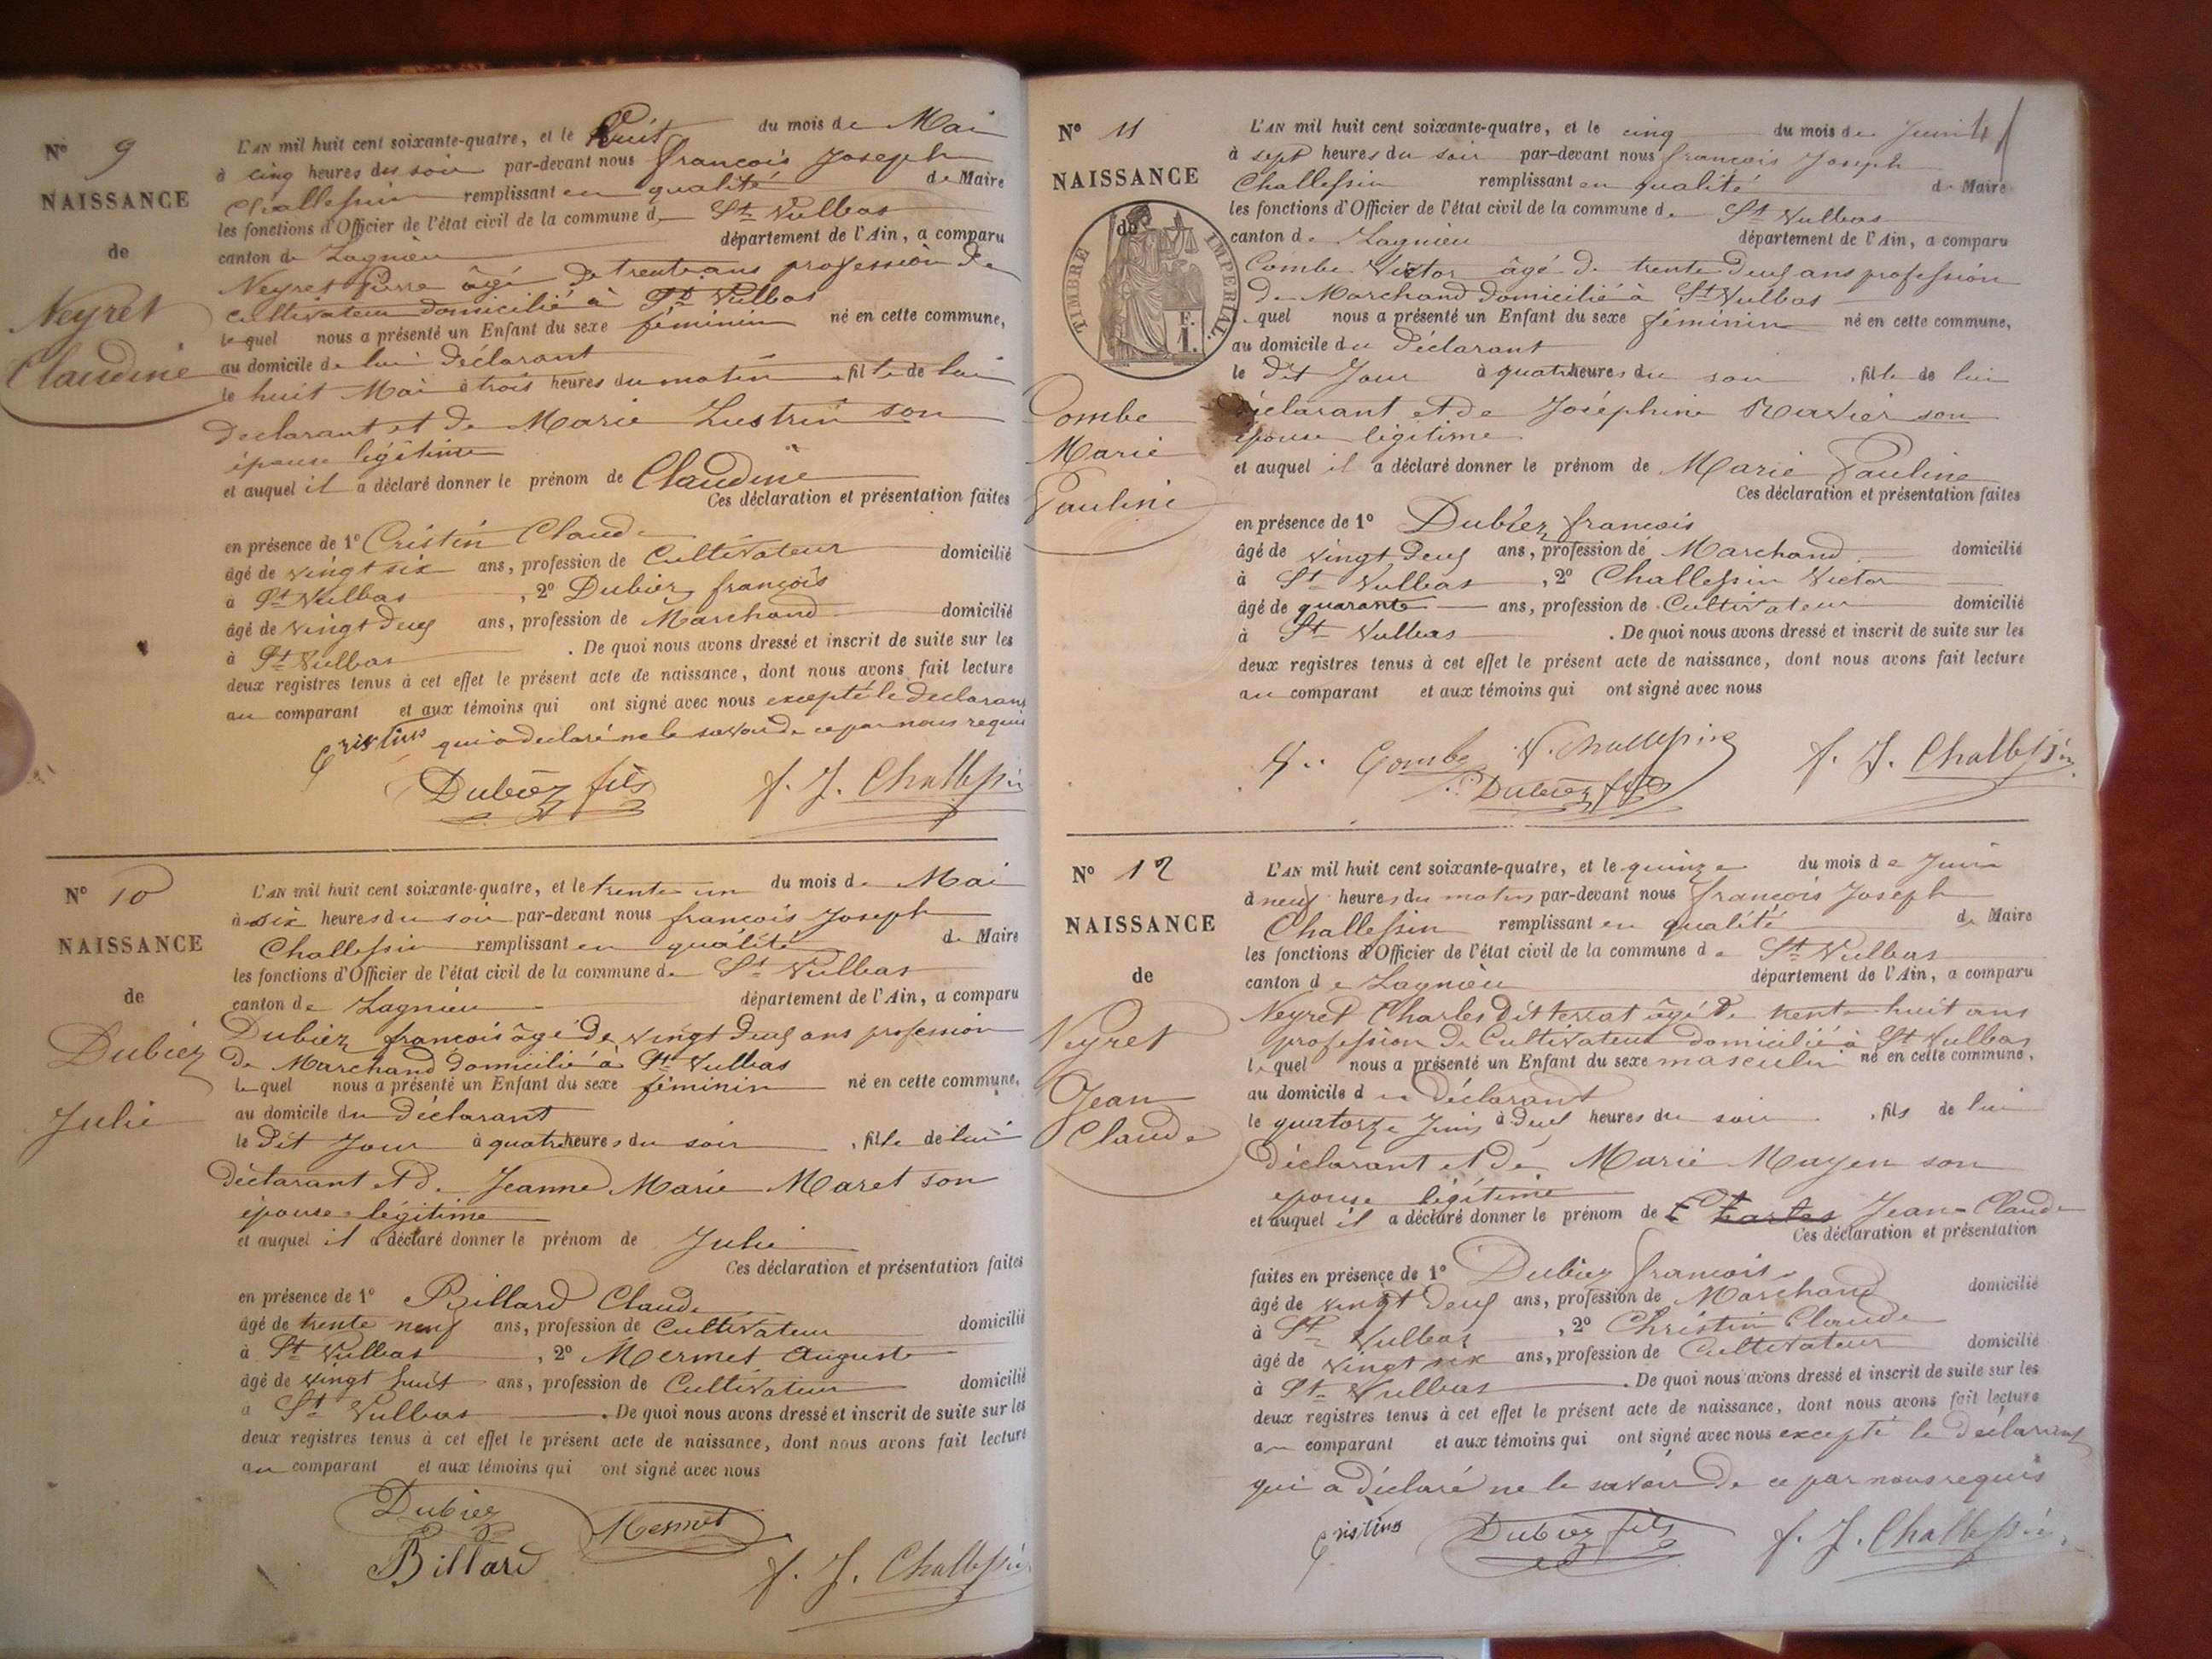 N° 9
NAISSANCE
de
Neyret
Claudine
L'AN mil huit cent soixante-quatre, et le huit du mois de Mai
à cinq heures du soir par-devant nous françois Joseph
Challessin remplissant en qualité de Maire
les fonctions d'Officier de l'état civil de la commune de St Vulbas
canton de Lagnieu département de l'Ain, a comparu
Neyret Pierre âgé de trente ans profession de
cultivateur domicilié à St Vulbas
lequel nous a présenté un Enfant du sexe féminin né en cette commune,
au domicile de lui déclarant
le huit Mai à trois heures du matin, fille de lui
déclarant et de Marie Lustrin son
épouse légitime
et auquel il a déclaré donner le prénom de Claudine
Ces déclaration et présentation faites
en présence de 1° Cristin Claude
âgé de vingt six ans, profession de Cultivateur domicilié
à St Vulbas, 2° Dubiez françois
âgé de vingt deux ans, profession de Marchand domicilié
à St Vulbas. De quoi nous avons dressé et inscrit de suite sur les
deux registres tenus à cet effet le présent acte de naissance, dont nous avons fait lecture
au comparant et aux témoins qui ont signé avec nous excepté le declarant
qui a declaré ne le savoir de ce par nous requis
Cristin
Dubiez fils f. J. Challessin
N° 10
NAISSANCE
de
Dubiez
Julie
L'AN mil huit cent soixante-quatre, et le trente un du mois de Mai
à six heures du soir par-devant nous françois Joseph
Challessin remplissant en qualité de Maire
les fonctions d'Officier de l'état civil de la commune de St Vulbas
canton de Lagnieu département de l'Ain, a comparu
Dubiez françois âgé de vingt deux ans profession
de Marchand domicilié à St Vulbas
lequel nous a présenté un Enfant du sexe féminin né en cette commune,
au domicile du déclarant
le dit Jour à quatre heures du soir, fille de lui
déclarant et de Jeanne Marie Maret son
épouse légitime
et auquel il a déclaré donner le prénom de Julie
Ces déclaration et présentation faites
en présence de 1° Billard Claude
âgé de trente neuf ans, profession de Cultivateur domicilié
à St Vulbas, 2° Mermet Auguste
âgé de vingt huit ans, profession de Cultivateur domicilié
à St Vulbas. De quoi nous avons dressé et inscrit de suite sur les
deux registres tenus à cet effet le présent acte de naissance, dont nous avons fait lecture
au comparant et aux témoins qui ont signé avec nous
Dubiez
Mermet
Billard
f. J. Challessin
N° 11
NAISSANCE
de
TIMBRE IMPERIAL.
F.
1.
Combe
Marie
Pauline
L'AN mil huit cent soixante-quatre, et le cinq du mois de Juin
à sept heures du soir par-devant nous françois Joseph
Challessin remplissant en qualité de Maire
les fonctions d'Officier de l'état civil de la commune de St Vulbas
canton de Lagnieu département de l'Ain, a comparu
Combe Victor âgé de trente deux ans profession
de Marchand domicilié à St Vulbas
quel nous a présenté un Enfant du sexe féminin né en cette commune,
au domicile du déclarant
le dit Jour à quatre heures du soir, fille de lui
déclarant et de Joséphine Ravier son
épouse légitime
et auquel il a déclaré donner le prénom de Marie Pauline
Ces déclaration et présentation faites
en présence de 1° Dubiez françois
âgé de vingt deux ans, profession de Marchand domicilié
à St Vulbas, 2° Challessin Victor
âgé de quarante ans, profession de Cultivateur domicilié
à St Vulbas. De quoi nous avons dressé et inscrit de suite sur les
deux registres tenus à cet effet le présent acte de naissance, dont nous avons fait lecture
au comparant et aux témoins qui ont signé avec nous
Combe V. Challessin f. J. Challessin
Dubiez fils
N° 12
NAISSANCE
de
Neyret
Jean
Claude
L'AN mil huit cent soixante-quatre, et le quinze du mois de Juin
à neuf heures du matin par-devant nous françois Joseph
Challessin remplissant en qualité de Maire
les fonctions d'Officier de l'état civil de la commune de St Vulbas
canton de Lagnieu département de l'Ain, a comparu
Neyret Charles dit terrat âgé de trente huit ans
profession de Cultivateur domicilié à St Vulbas
lequel nous a présenté un Enfant du sexe masculin né en cette commune,
au domicile du déclarant
le quatorze Juin à deux heures du soir, fils de lui
déclarant et de Marie Mayen son
épouse légitime
et auquel il a déclaré donner le prénom de Charles Jean-Claude
Ces déclaration et présentation
faites en présence de 1° Dubiez francois
âgé de vingt deux ans, profession de Marchand domicilié
à St Vulbas, 2° Christin Claude
âgé de vingt six ans, profession de Cultivateur domicilié
à St Vulbas. De quoi nous avons dressé et inscrit de suite sur les
deux registres tenus à cet effet le présent acte de naissance, dont nous avons fait lecture
au comparant et aux témoins qui ont signé avec nous excepté le déclarant
qui a déclaré ne le savoir de ce par nous requis
Cristin Dubiez fils f. J. Challessin